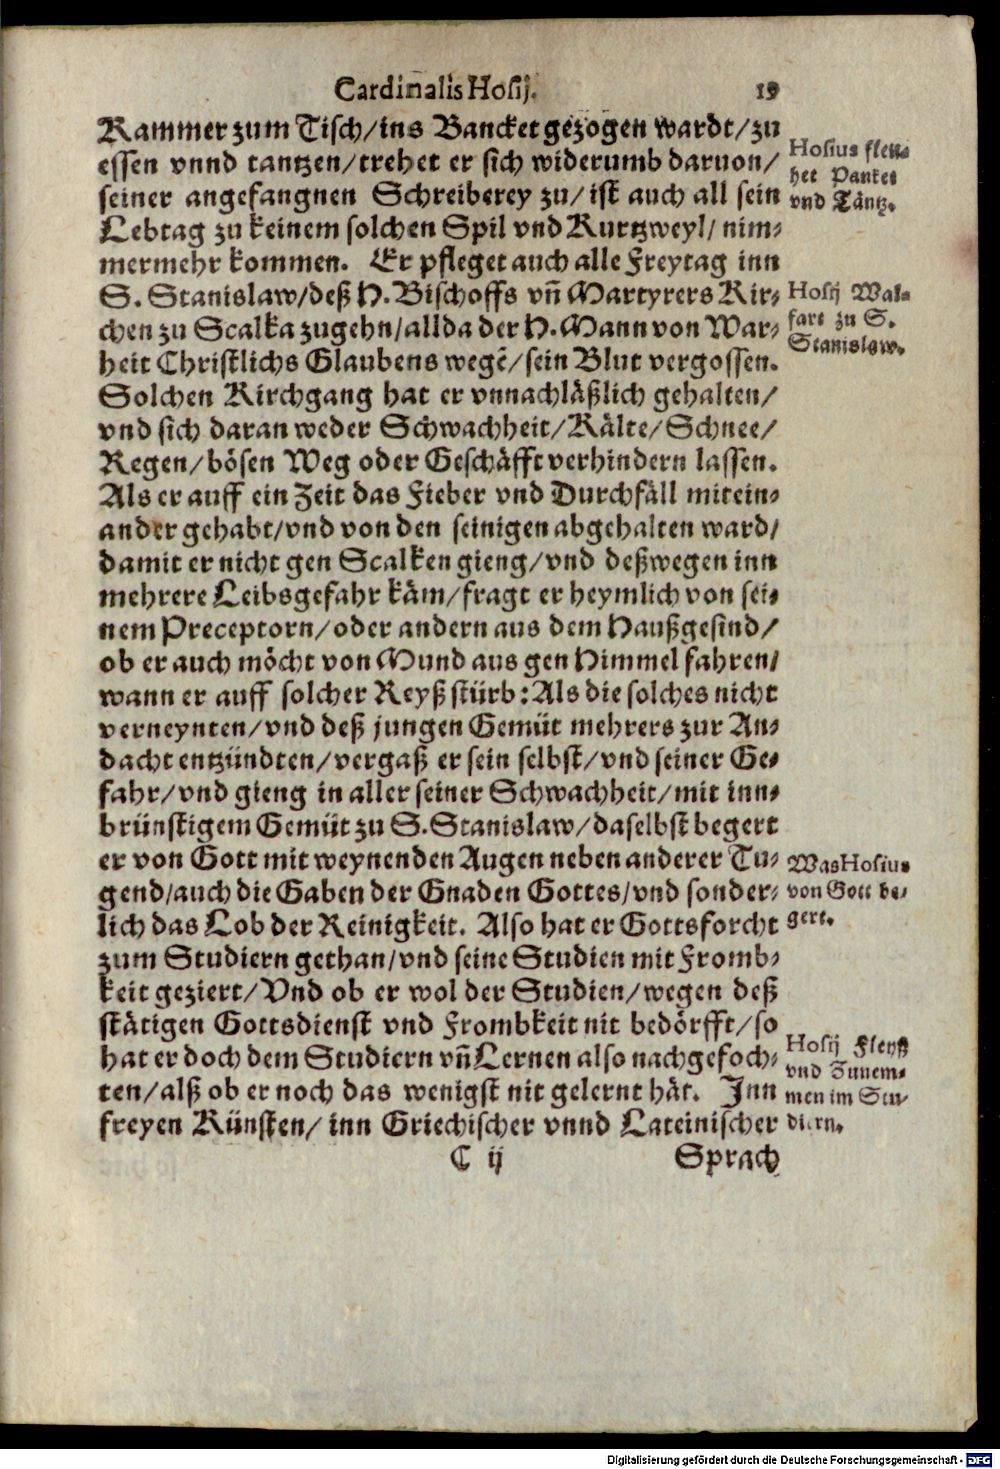 Cardinalis Hosij. 19
Kammer zum Tisch/ins Bancket gezogen wardt/zu
essen vnnd tantzen/trehet er sich widerumb daruon/
seiner angefangnen Schreiberey zu/ist auch all sein
Lebtag zu keinem solchen Spil vnd Kurtzweyl/nim-
mermehr kommen. Er pfleget auch alle Freytag inn
S. Stanislaw/deß H. Bischoffs vñ Martyrers Kir-
chen zu Scalka zugehn/allda der H. Mann von War-
heit Christlichs Glaubens wegẽ/sein Blut vergossen.
Solchen Kirchgang hat er vnnachläßlich gehalten/
vnd sich daran weder Schwachheit/Kälte/Schnee/
Regen/bösen Weg oder Geschäfft verhindern lassen.
Als er auff ein Zeit das Fieber vnd Durchfäll mitein-
ander gehabt/vnd von den seinigen abgehalten ward/
damit er nicht gen Scalken gieng/vnd deßwegen inn
mehrere Leibsgefahr käm/fragt er heymlich von sei-
nem Preceptorn/oder andern aus dem Haußgesind/
ob er auch möcht von Mund aus gen Himmel fahren/
wann er auff solcher Reyß stürb: Als die solches nicht
verneynten/vnd deß jungen Gemüt mehrers zur An-
dacht entzündten/vergaß er sein selbst/vnd seiner Ge-
fahr/vnd gieng in aller seiner Schwachheit/mit inn-
brünstigem Gemüt zu S. Stanislaw/daselbst begert
er von Gott mit weynenden Augen neben anderer Tu-
gend/auch die Gaben der Gnaden Gottes/vnd sonder-
lich das Lob der Reinigkeit. Also hat er Gottsforcht
zum Studiern gethan/vnd seine Studien mit Fromb-
keit geziert/Vnd ob er wol der Studien/wegen deß
stätigen Gottsdienst vnd Frombkeit nit bedörfft/so
hat er doch dem Studiern vñ Lernen also nachgefoch-
ten/alß ob er noch das wenigst nit gelernt hät. Inn
freyen Künsten/inn Griechischer vnnd Lateinischer
C ij Sprach
Hosius fleu-
het Panket
vnd Täntz.
Hosij Wal-
fart zu S.
Stanislaw.
Was Hosius
von Gott be-
gert.
Hosij Fleyß
vnd Zunem-
men im Stu-
diern.
Digitalisierung gefördert durch die Deutsche Forschungsgemeinschaft - DFG